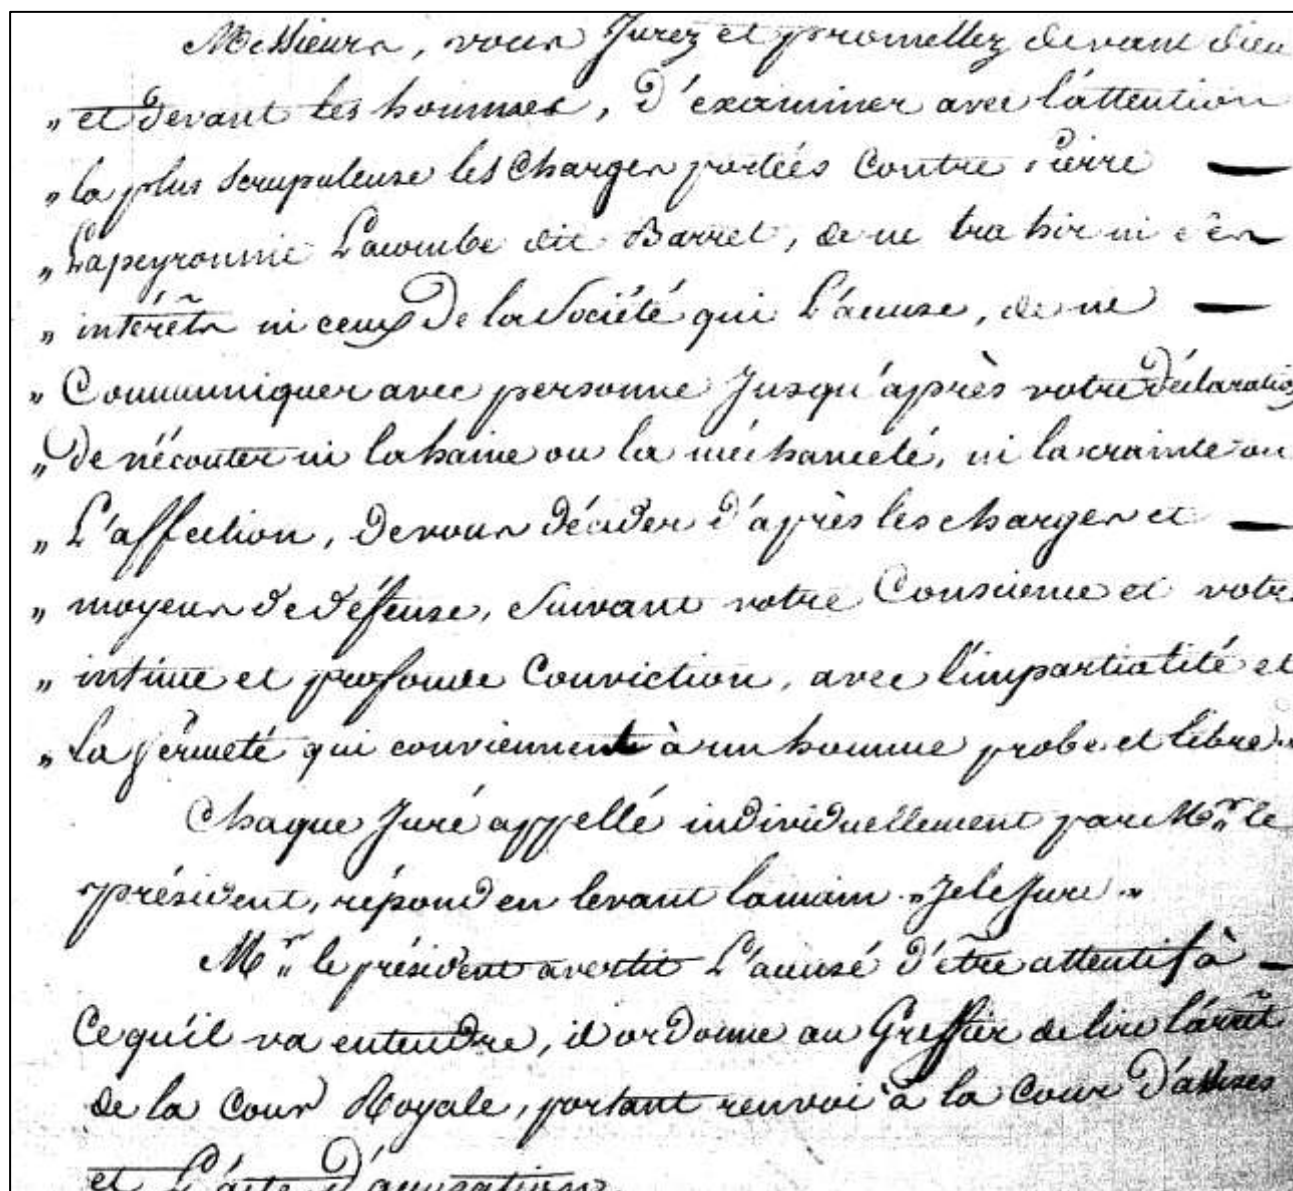 Messieurs, vous Jurez et promettez devant dieu
„ et devant les hommes, D'examiner avec l'attention
„ la plus scrupuleuse les Charges portées Contre Pierre —
„ Lapeyronnie Lacombe dit Barret, de ne trahir ni ses
„ intérêts ni ceux De la Société qui L'accuse, de ne —
„ Communiquer avec personne Jusqu'après votre Déclaration
„ De n'écouter ni la haine ou la méchanceté, ni la crainte ou
„ L'affection, De vous Décider D'après les charges et —
„ moyens de défense, Suivant votre Conscience et votre
„ intime et profonde Conviction, avec l'impartialité et
„ La fermeté qui conviennent à un homme probe et libre.„
Chaque Juré appellé individuellement par Mr„ le
président, répond en levant la main „ Je le Jure „
Mr„ le président avertit L'accusé d'être attentif à —
Ce qu'il va entendre, il ordonne au Greffier de lire l'arrêt
de la Cour Royale, portant renvoi à la Cour D'assises
et L'acte D'accusation